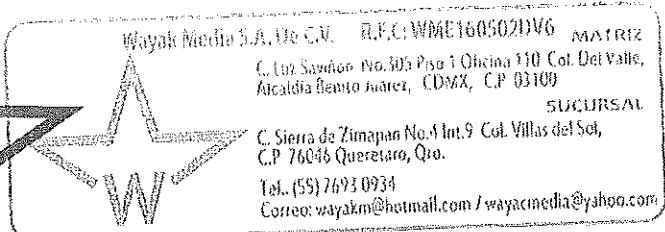 Wayak Media S.A. De C.V. R.F.C: WME160502DV6 MATRIZ
C. Luz Saviñon No.305 Piso 1 Oficina 110 Col. Del Valle,
Alcaldía Benito Juárez, CDMX, C.P 03100
SUCURSAL
C. Sierra de Zimapan No.4 Int.9 Col. Villas del Sol,
C.P 76046 Querétaro, Qro.
Tel. (55) 7693 0934
Correo: wayakm@hotmail.com / wayacmedia@yahoo.com
W